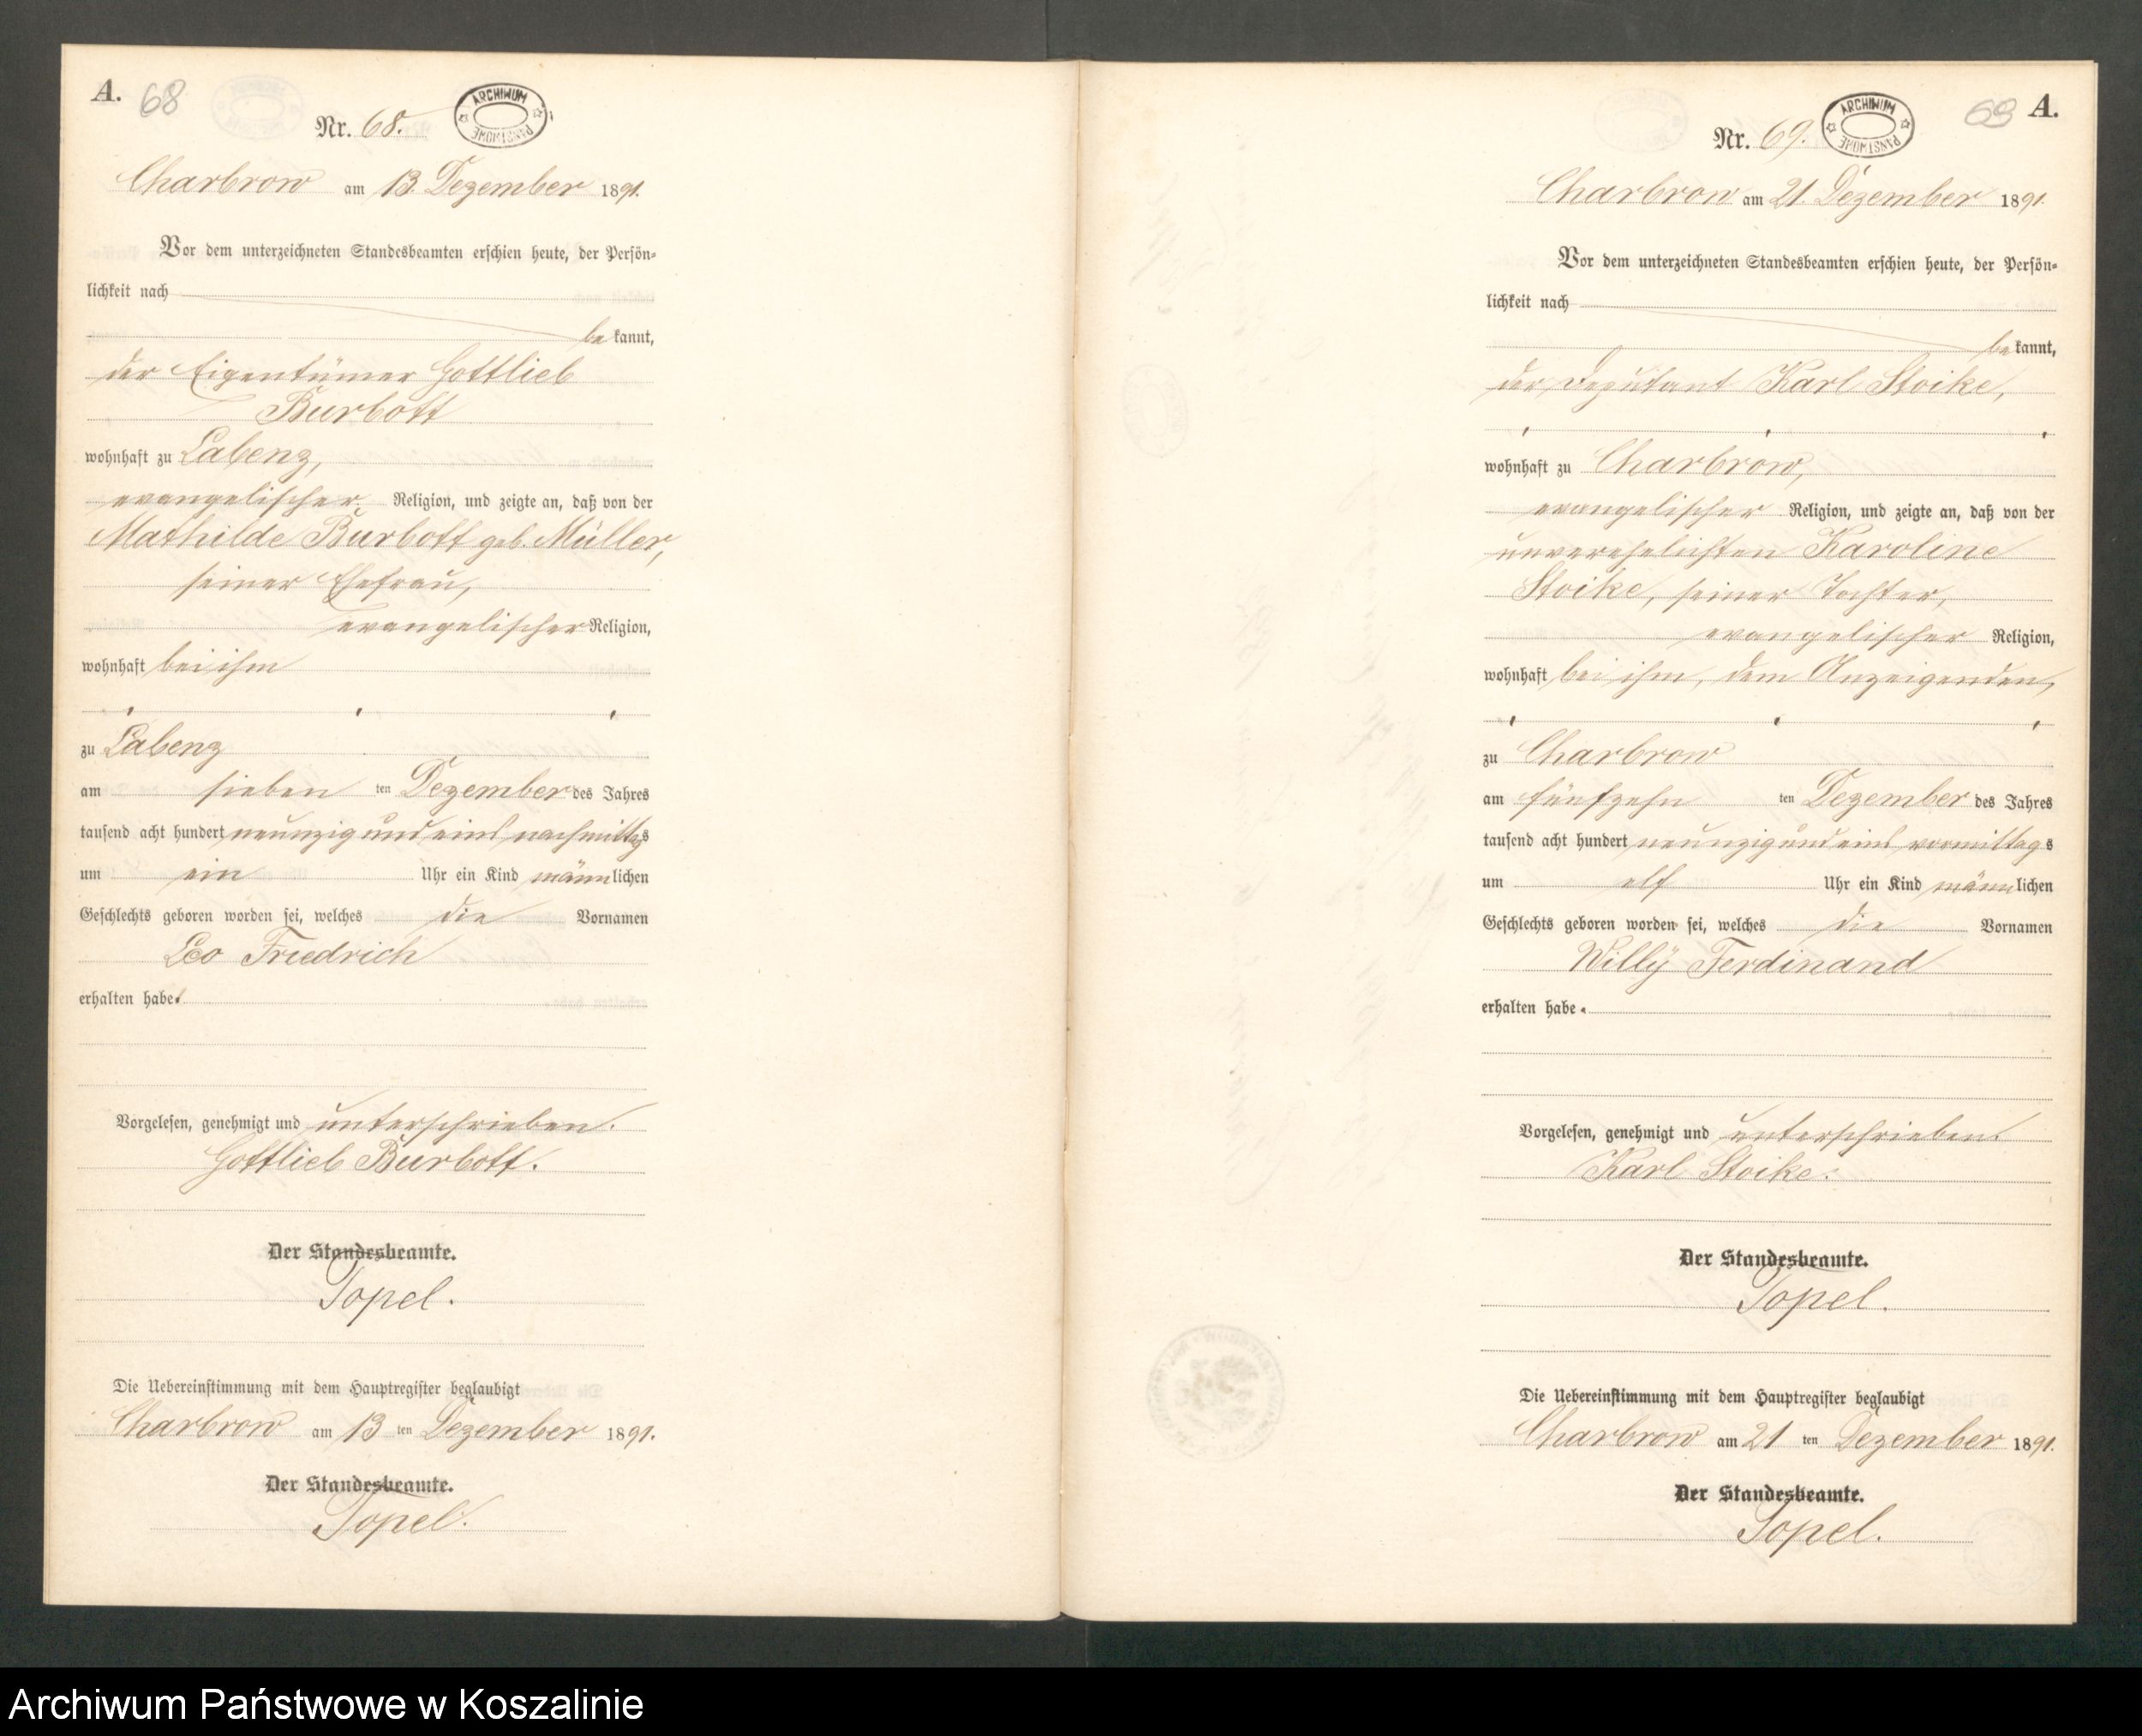 A. 68
Nr. 68.
ARCHIWUM PAŃSTWOWE
Charbrow am 13. Dezember 1891.
Vor dem unterzeichneten Standesbeamten erschien heute, der Persön-
lichkeit nach
be kannt,
der Eigentümer Gottlieb
Burbott
wohnhaft zu Labenz,
evangelischer Religion, und zeigte an, daß von der
Mathilde Burbott geb. Müller,
seiner Ehefrau,
evangelischer Religion,
wohnhaft bei ihm
zu Labenz
am sieben ten Dezember des Jahres
tausend acht hundert neunzig und eins nachmittags
um ein Uhr ein Kind männlichen
Geschlechts geboren worden sei, welches die Vornamen
Leo Friedrich
erhalten habe.
Vorgelesen, genehmigt und unterschrieben.
Gottlieb Burbott.
Der Standesbeamte.
Topel.
Die Uebereinstimmung mit dem Hauptregister beglaubigt
Charbrow am 13 ten Dezember 1891.
Der Standesbeamte.
Topel.
69 A.
Nr. 69.
ARCHIWUM PAŃSTWOWE
Charbrow am 21. Dezember 1891.
Vor dem unterzeichneten Standesbeamten erschien heute, der Persön-
lichkeit nach
be kannt,
der Deputant Karl Stoike,
wohnhaft zu Charbrow,
evangelischer Religion, und zeigte an, daß von der
unverehelichten Karoline
Stoike, seiner Tochter,
evangelischer Religion,
wohnhaft bei ihm, dem Anzeigenden,
zu Charbrow
am fünfzehn ten Dezember des Jahres
tausend acht hundert neunzig und eins vormittags
um elf Uhr ein Kind männlichen
Geschlechts geboren worden sei, welches die Vornamen
Willÿ Ferdinand
erhalten habe.
Vorgelesen, genehmigt und unterschrieben.
Karl Stoike.
Der Standesbeamte.
Topel.
Die Uebereinstimmung mit dem Hauptregister beglaubigt
Charbrow am 21 ten Dezember 1891.
Der Standesbeamte.
Topel.
Archiwum Państwowe w Koszalinie